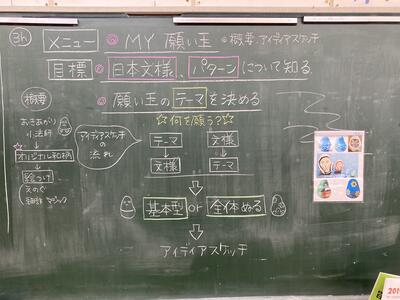 3h メニュー ◎ MY 願い玉 ◎ 概要、アイディアスケッチ
目標 ◎ 日本文様、パターンについて知る。
概要
おきあがり
小法師
オリジナル和柄
絵つけ
えのぐ
◎ 願い玉のテーマを決める
☆何を願う?☆
アイディアスケッチの
流れ
テーマ 文様
文様 テーマ
基本型 or 全体ぬる
アイディアスケッチ
201